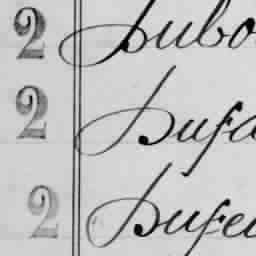 2 Dubo
2 Dufa
2 Dufe